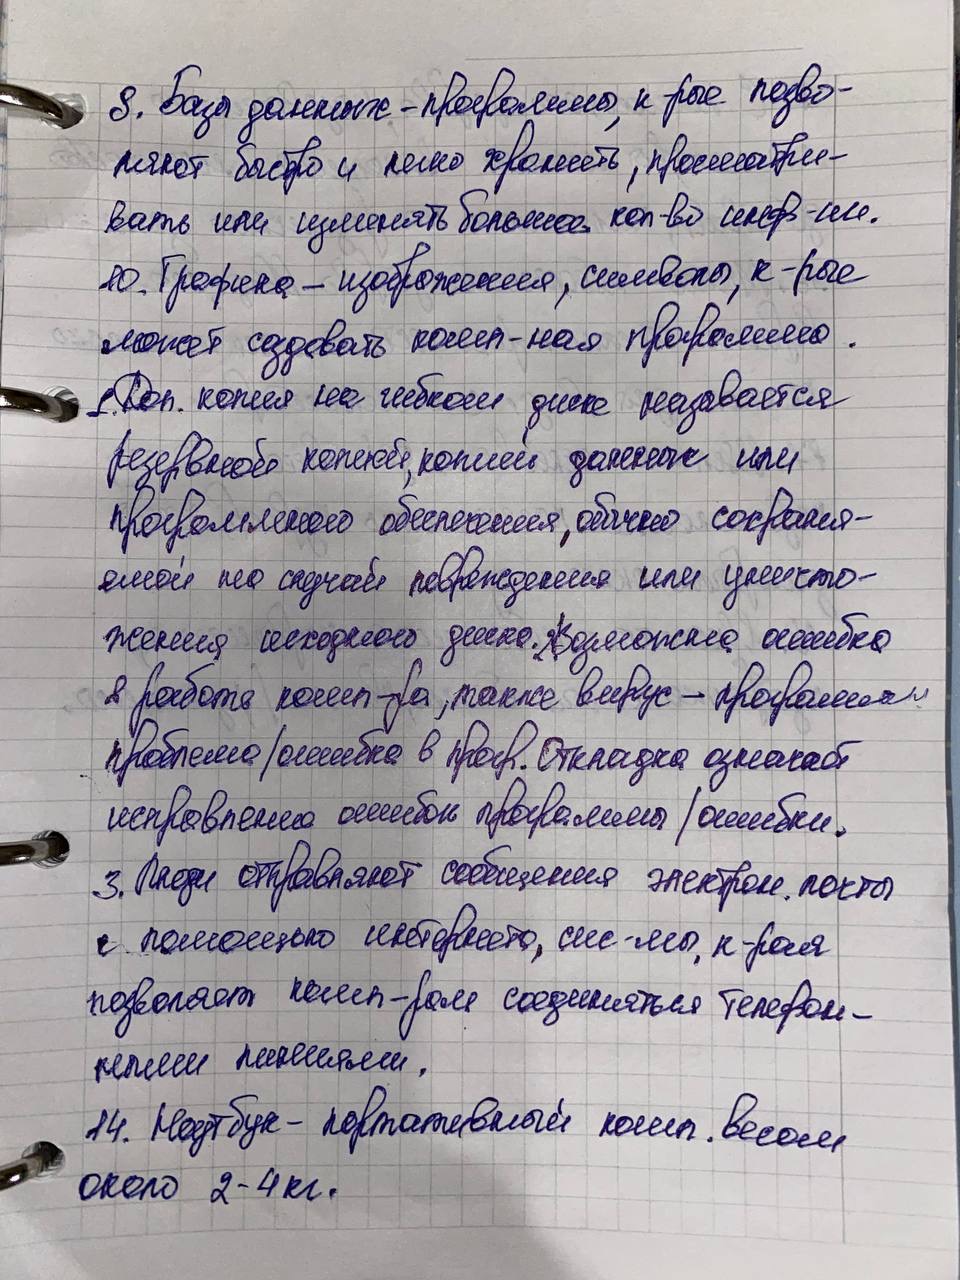 9. Базы данных - программы, к-рые позво-
ляют быстро и легко хранить, просматри-
вать или изменять большое кол-во инф-ии.
10. Графика - изображения, символы, к-рые
может создавать комп-ная программа.
1. Доп. копия на гибком диске называется
резервной копией, копией данных или
программного обеспечения, обычно сохраня-
емой на случай повреждения или уничто-
жения исходного диска. 2. Возможна ошибка
в работе комп-ра, также вирус - программа
проблема/ошибка в прогр. Откладка означает
исправление ошибок программы/ошибки.
3. Люди отправляют сообщения электрон. почты
с помощью интернета, сис-мы, к-рая
позволяет комп-рам соединяться телефон-
ными линиями.
14. Ноутбук - портативный комп. весом
около 2-4 кг.